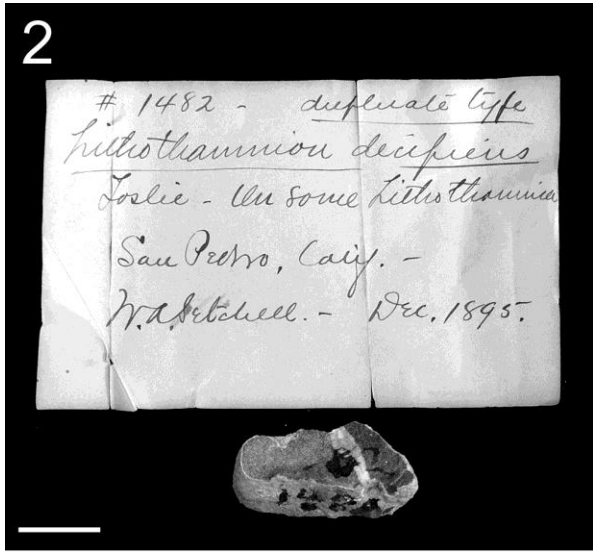 2
# 1482 - duplicate type
Lithothamnion decipiens
Foslie - On some Lithothamnia
San Pedro, Calif. -
W.A. Setchell. - Dec. 1895.